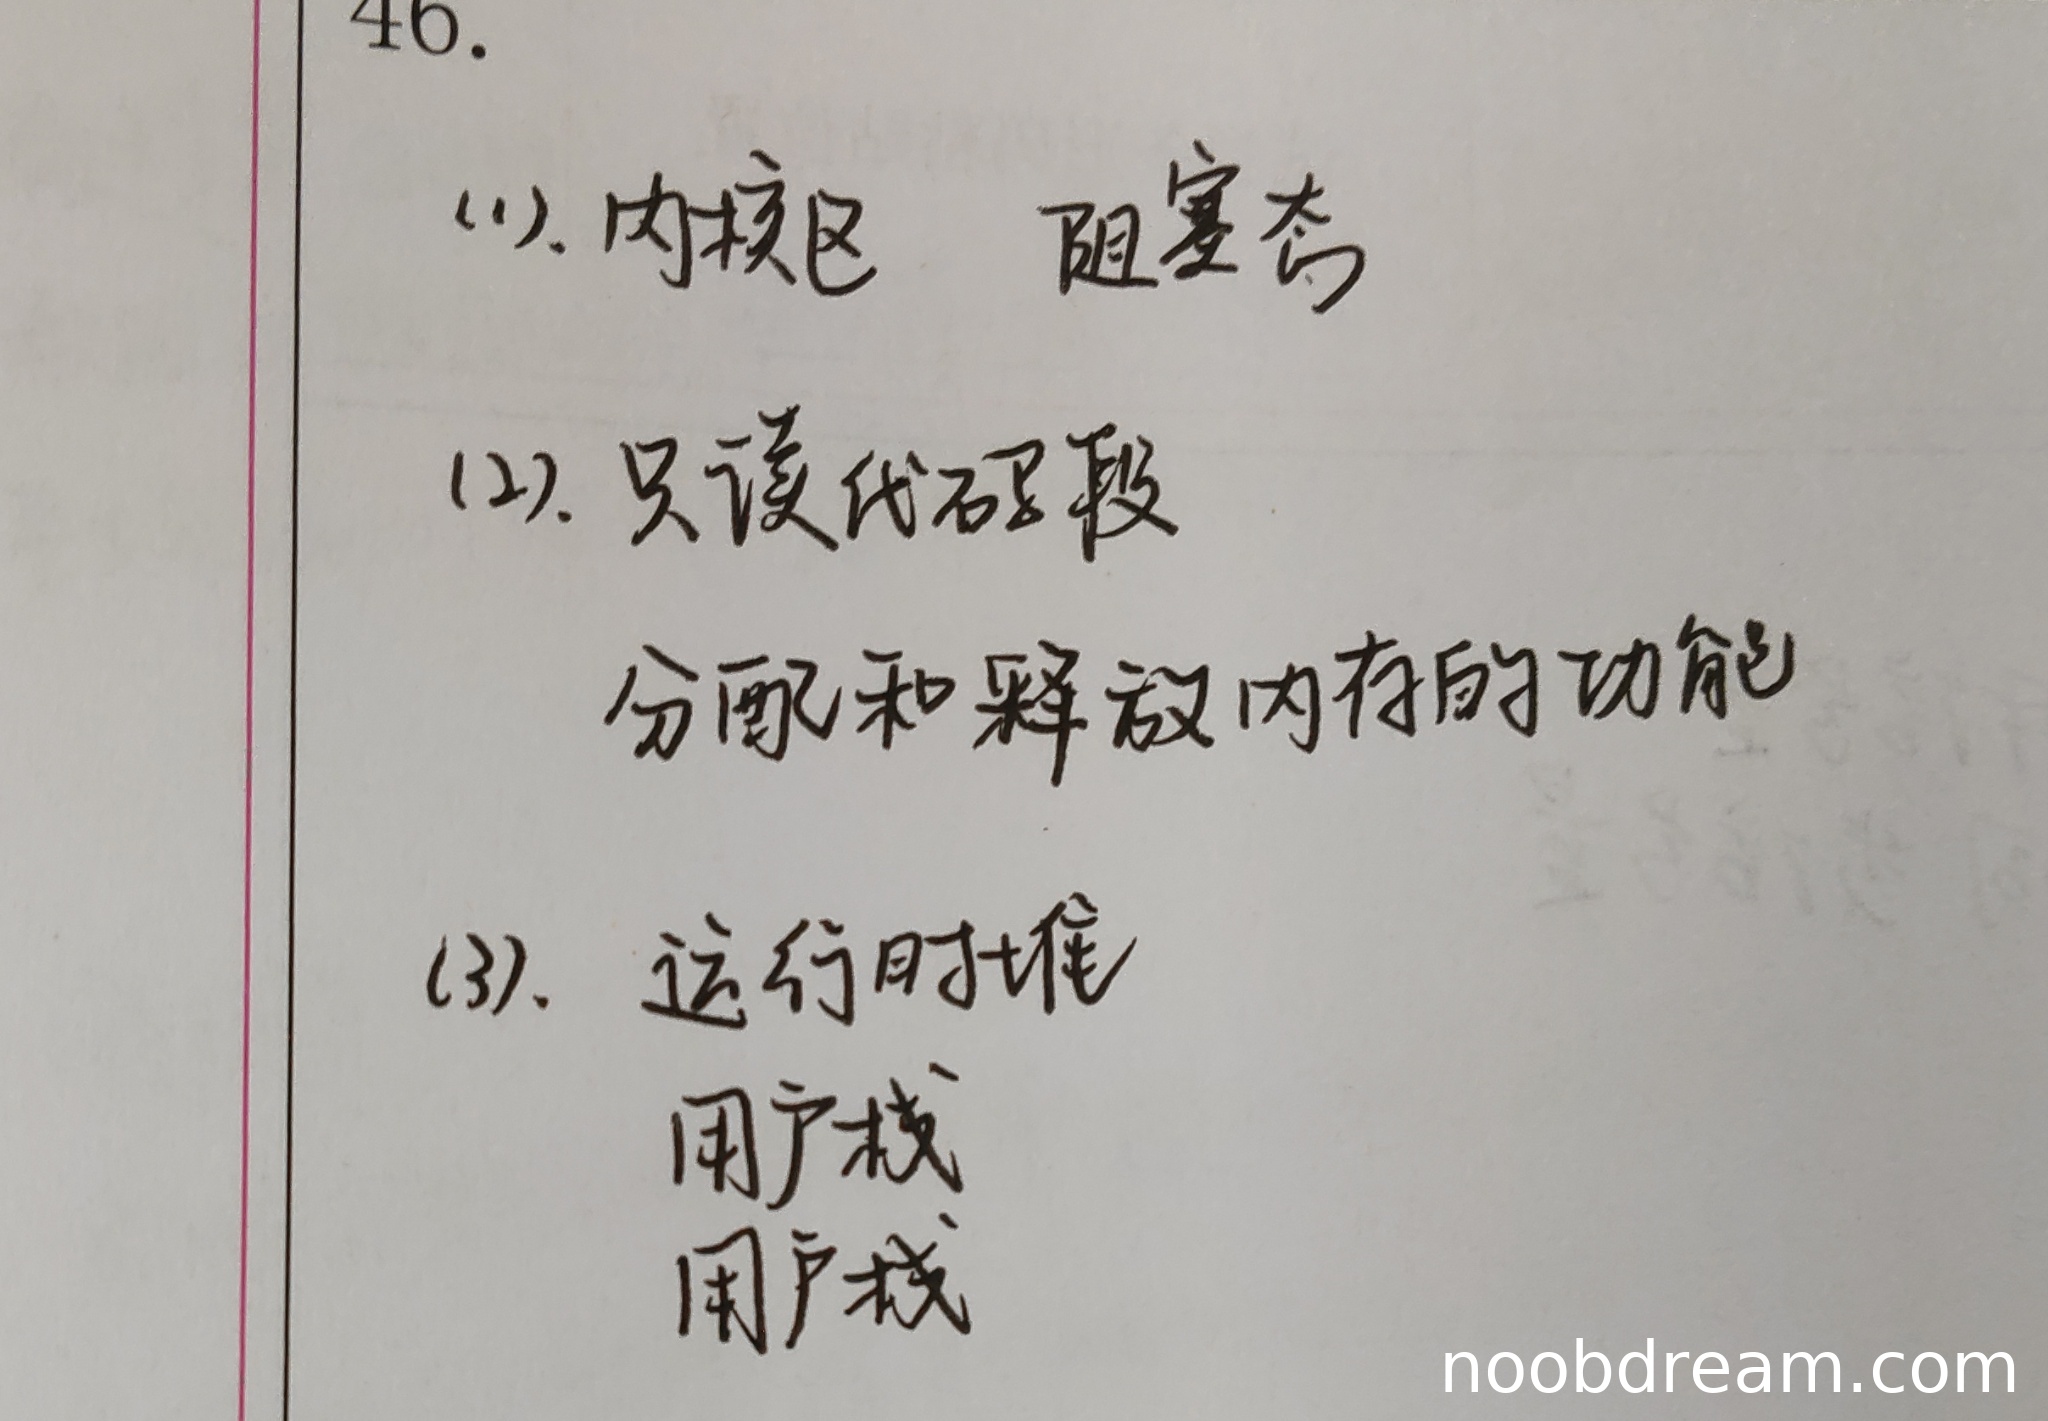 46.
(1). 内核区 阻塞态
(2). 只读代码段
分配和释放内存的功能
(3). 运行时堆
用户栈
用户栈
noobdream.com